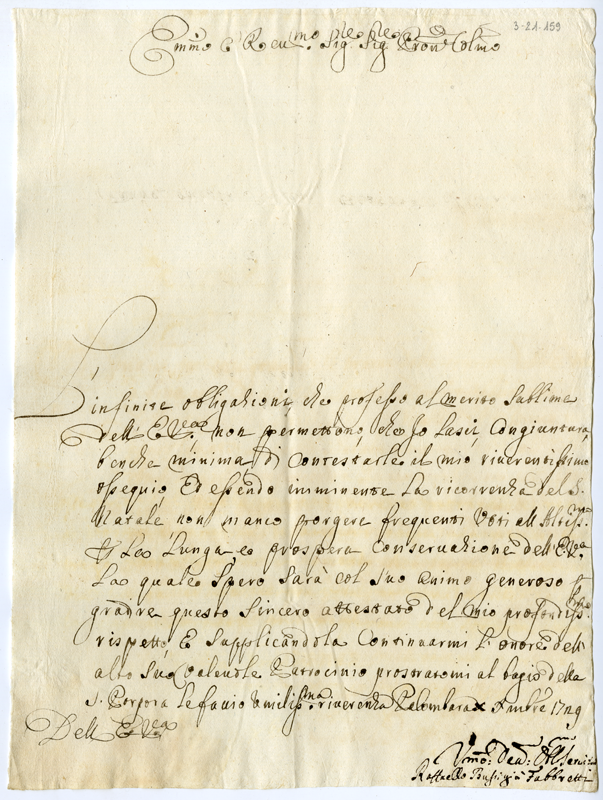 3-21-159
Emmo e Reumo Sig. Sig. Prone Colmo
L'infinite obligazioni, che professo al merito sublime
dell' E. Va. non permettono, che Io lasci congiuntura,
benche minima, di contestarle il mio riverentissimo
ossequio, Ed essendo imminente la ricorrenza del S.
Natale non manco porgere frequenti Voti all' Altissmo
p Le Lunga, e prospera conservazione dell' E. Va.
La quale spero sarà col suo animo generoso p
gradire questo sincero attestato del mio profondissmo
rispetto, E supplicandola Continuarmi l'onore dell'
alto suo valeuole Patrocinio prostratomi al bagio della
S. Porpora le faccio umilissma riverenza Palombara Xmbre 1729
Dell' E. Va.
Vmo: Deu: Obl Serui:
Raffaello Fabbretti